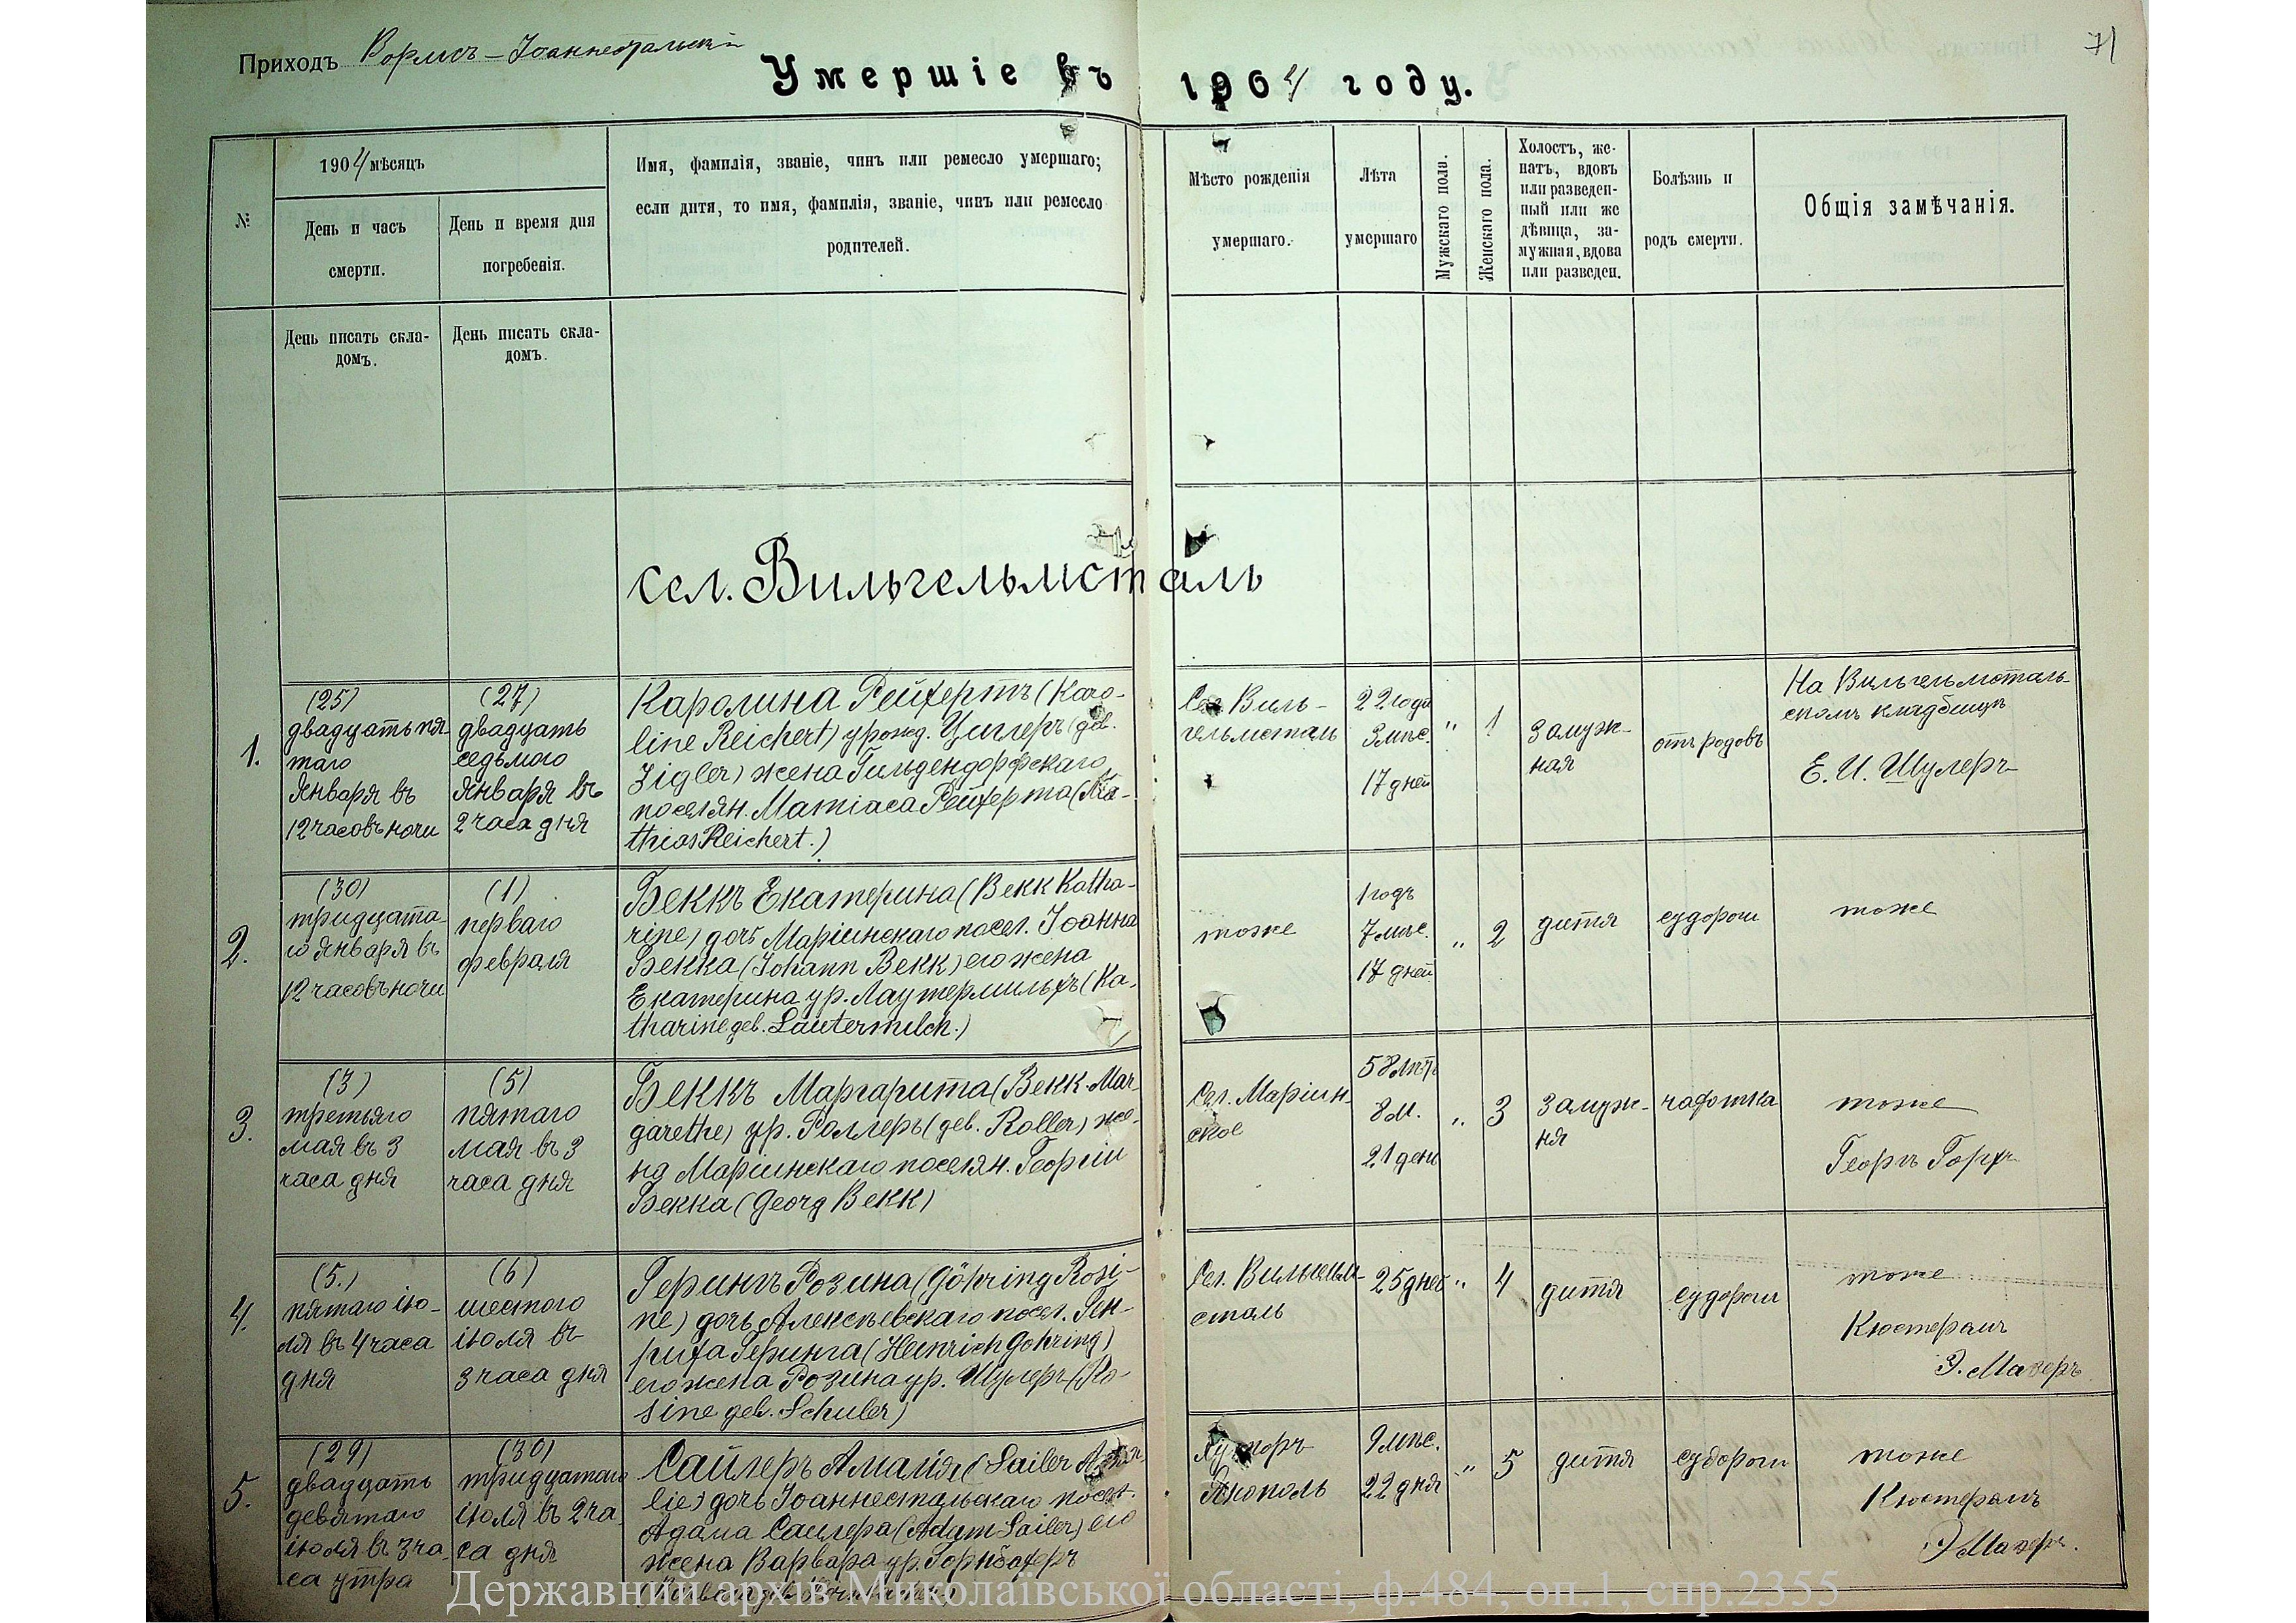 Приходъ Вормсъ-Іоаннестальскій
71
Умершіе въ 1904 году.
№
1904 мѣсяцъ
День и часъ смерти.
День и время дня погребенія.
Имя, фамилія, званіе, чинъ или ремесло умершаго;
если дитя, то имя, фамилія, званіе, чинъ или ремесло
родителей.
Мѣсто рожденія
умершаго.
Лѣта
умершаго
Мужскаго пола.
Женскаго пола.
Холостъ, же-
натъ, вдовъ
или разведен-
ный или же
дѣвица, за-
мужная, вдова
или разведен.
Болѣзнь и
родъ смерти.
Общія замѣчанія.
День писать скла-
домъ.
День писать скла-
домъ.
сел. Вильгельмсталь
1.
(25)
двадцать пя-
таго
Января въ
12 часовъ ночи
(27)
двадцать
седьмого
Января въ
2 часа дня
Каролина Рейхертъ (Karo-
line Reichert) урожд. Циглеръ (geb.
Zigler) жена Гильдендорфскаго
поселян. Матіаса Рейхерта (Ma-
thias Reichert.)
Сел. Виль-
гельмсталь
22 года
3 мѣс.
17 дней
"
1
Замуж-
ная
отъ родовъ
На Вильгельмсталь-
скомъ кладбищѣ
Е. И. Шулеръ
2.
(30)
тридцата-
го января въ
12 часовъ ночи
(1)
перваго
февраля
Беккъ Екатерина (Bekk Katha-
rine) дочь Маріинскаго посел. Іоанна
Бекка (Johann Bekk) его жена
Екатерина ур. Лаутермильхъ (Ka-
tharine geb. Lautermilch.)
тоже
1 годъ
7 мѣс.
17 дней
"
2
дитя
судороги
тоже
3.
(3)
третьяго
мая въ 3
часа дня
(5)
пятаго
мая въ 3
часа дня
Беккъ Маргарита (Bekk Mar-
garethe) ур. Роллеръ (geb. Roller) же-
на Маріинскаго поселян. Георгія
Бекка (Georg Bekk)
Сел. Маріин-
ское
58 лѣтъ
8 м.
21 день
"
3
Замуж-
ня
чахотка
тоже
Георгъ Горхъ
4.
(5.)
пятаго ію-
ля въ 4 часа
дня
(6)
шестого
іюля въ
3 часа дня
Герингъ Розина (Göhring Rosi-
ne) дочь Алексѣевскаго посел. Ген-
риха Геринга (Heinrich Göhring)
его жена Розина ур. Шулеръ (Ro-
sine geb. Schuler)
Сел. Вильгельм-
сталь
25 дней
"
4
дитя
судороги
тоже
Кюстератъ
Э. Мазеръ
5.
(29)
двадцать
девятаго
іюля въ 3 ча-
са утра
(30)
тридцатаго
іюля въ 2 ча-
са дня
Сайлеръ Амалія (Sailer Ama-
lie) дочь Іоаннестальскаго посел.
Адама Сайлера (Adam Sailer) его
жена Варвара ур. Горнбахеръ
Хуторъ
Якополь
9 мѣс.
22 дня
"
5
дитя
судороги
тоже
Кюстератъ
Э. Мазеръ.
Державний архів Миколаївської області, ф.484, оп.1, спр.2355